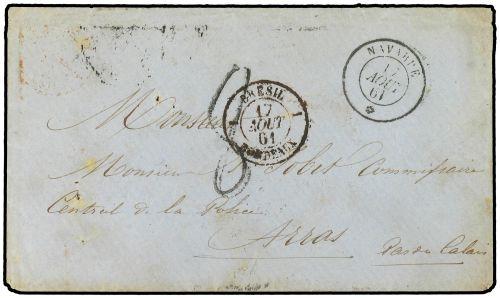 NAVARRE
17
AOUT
61
BRÉSIL 1
17
AOUT
61
BORDEAUX
8
Monsieur
Monsieur Jobet Commissaire
Central de la Police
Arras
Pas du Calais